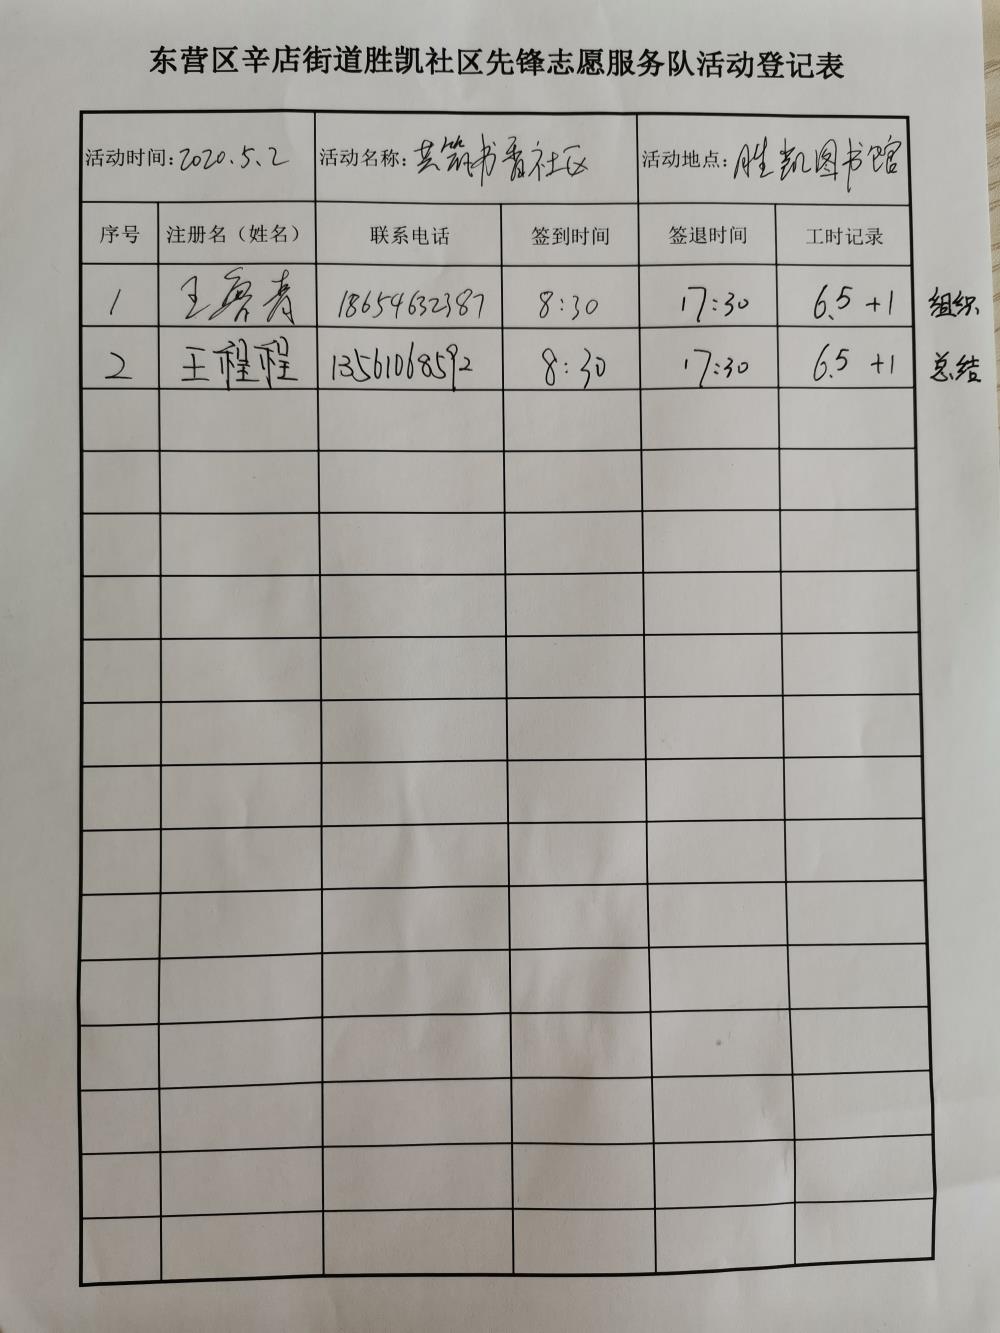 东营区辛店街道胜凯社区先锋志愿服务队活动登记表
活动时间:2020.5.2 活动名称:共筑书香社区 活动地点:胜凯图书馆
序号 注册名（姓名） 联系电话 签到时间 签退时间 工时记录
1 王 青 18654632387 8:30 17:30 6.5 +1 组织
2 王程程 13561068592 8:30 17:30 6.5 +1 总结